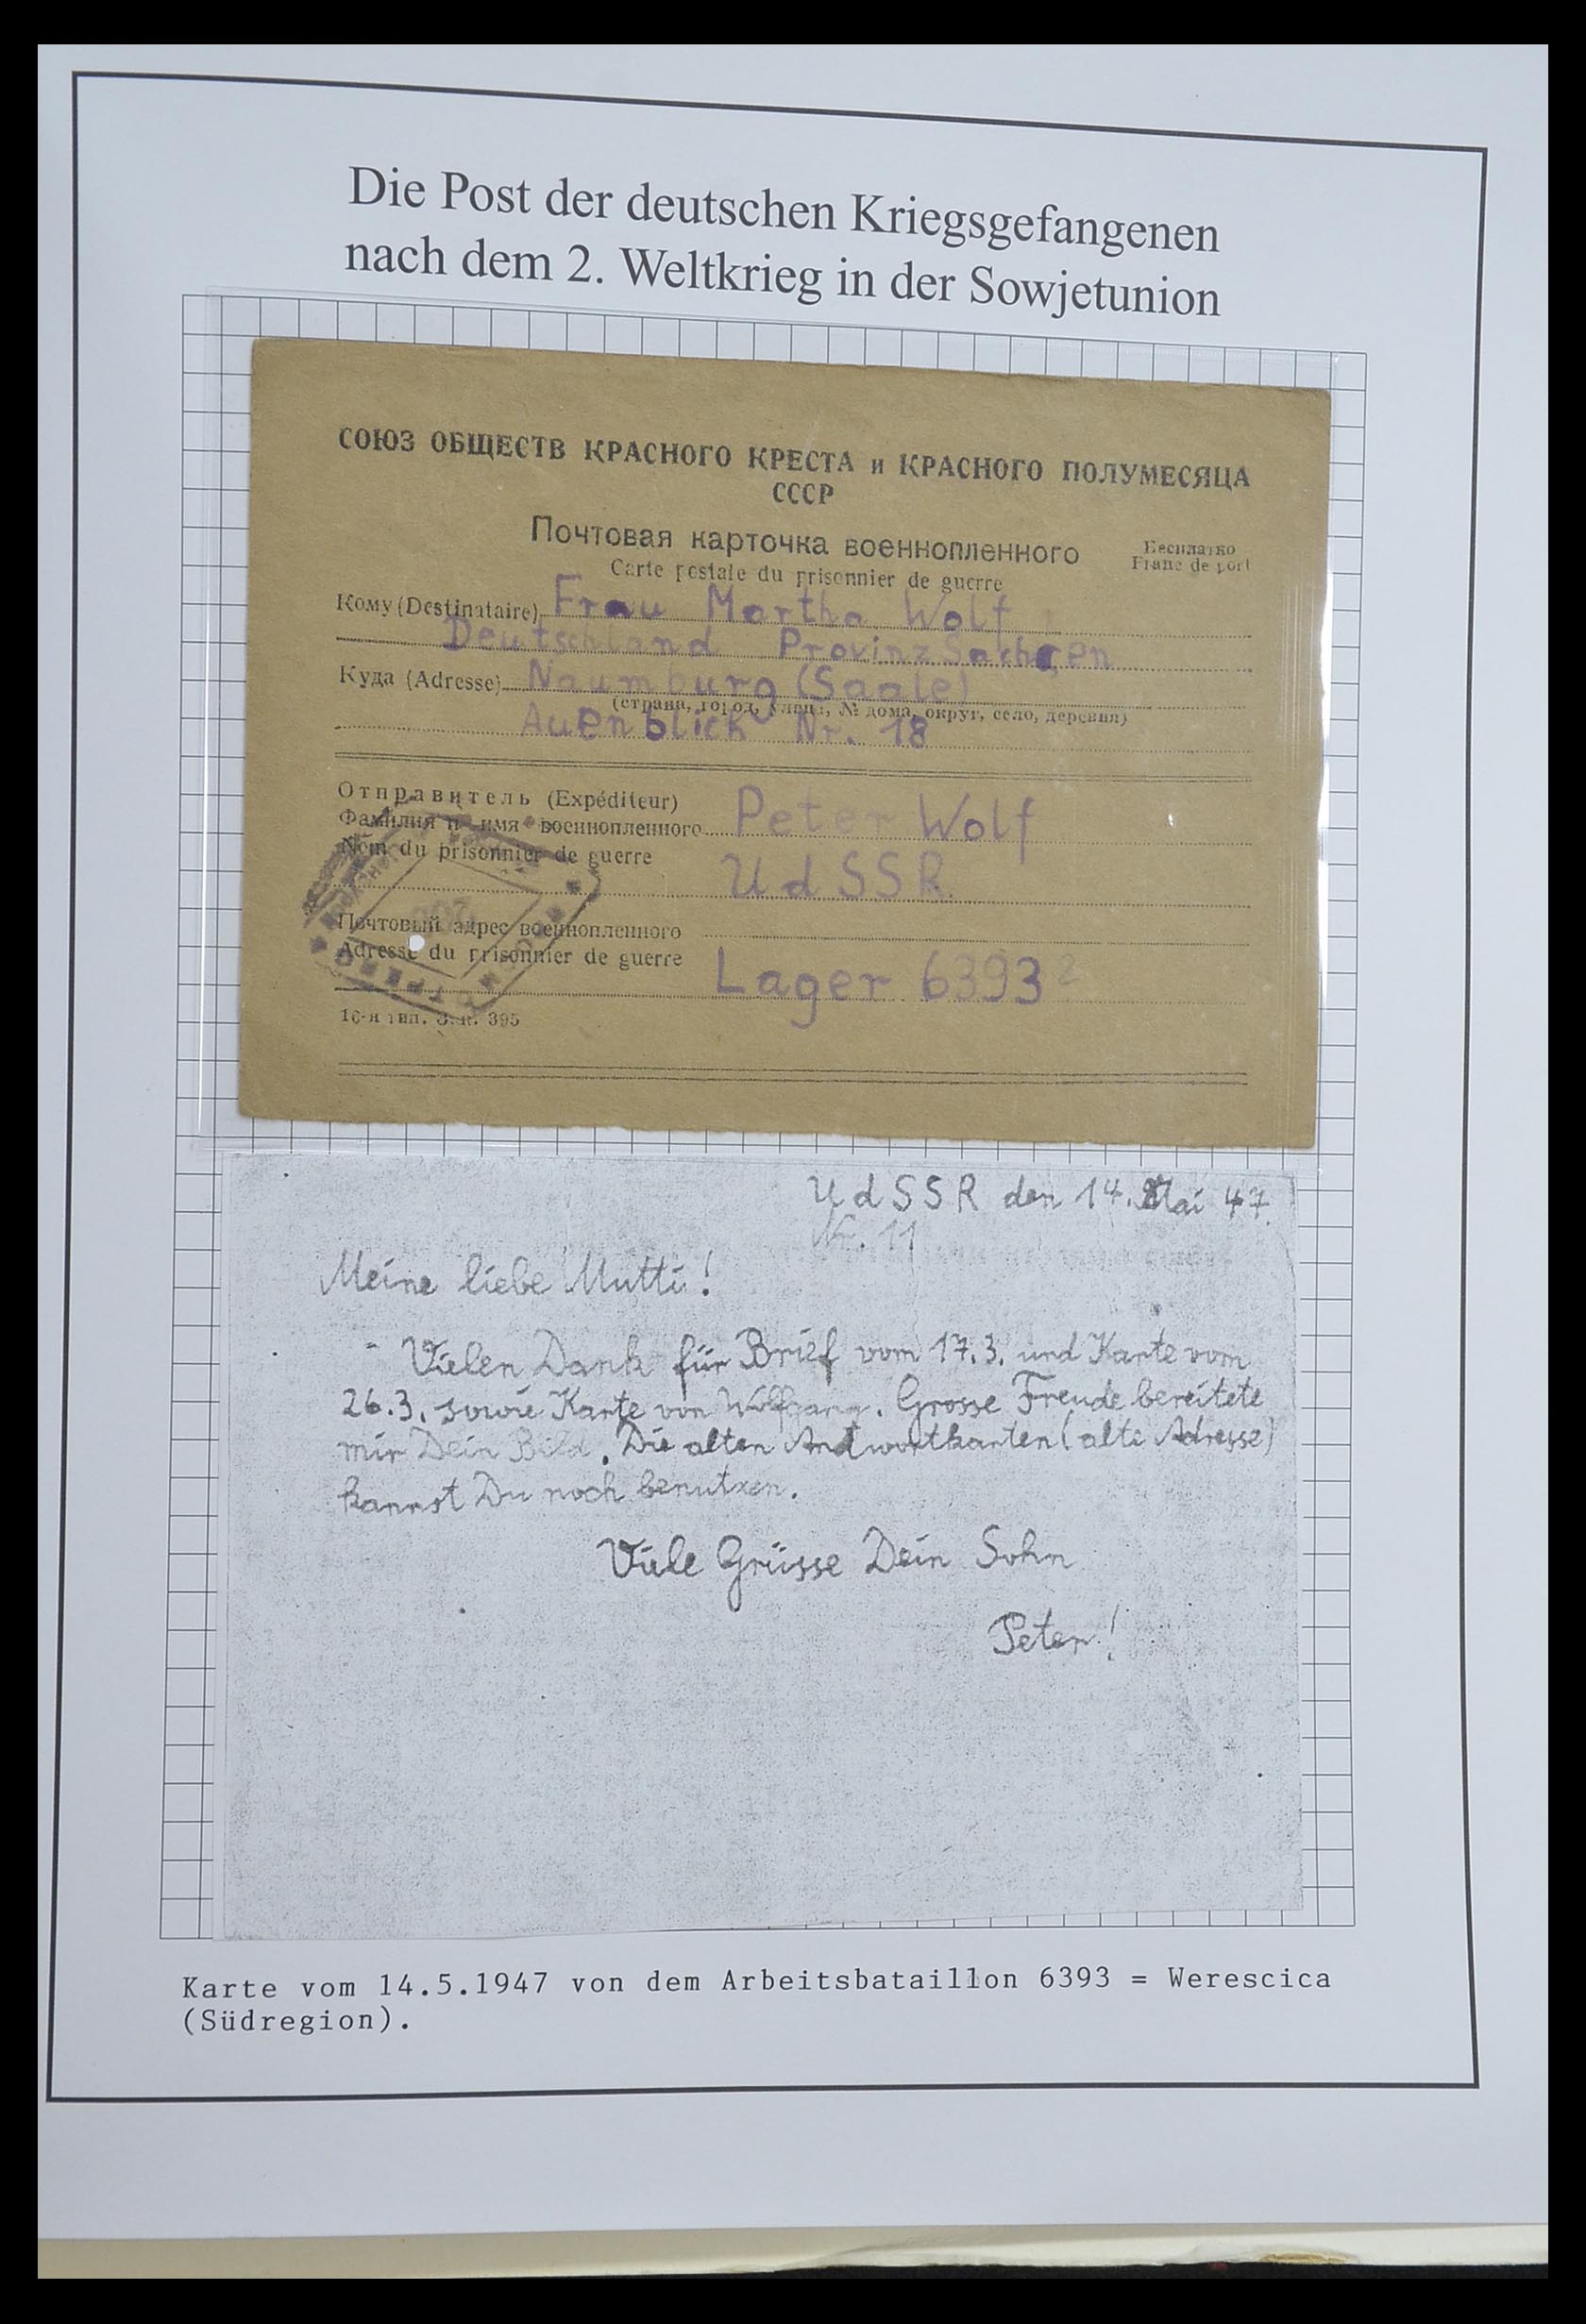 Die Post der deutschen Kriegsgefangenen
nach dem 2. Weltkrieg in der Sowjetunion
СОЮЗ ОБЩЕСТВ КРАСНОГО КРЕСТА и КРАСНОГО ПОЛУМЕСЯЦА
СССР
Почтовая карточка военнопленного
Бесплатно
Carte postale du prisonnier de guerre
Franc de port
Кому (Destinataire) Frau Martha Wolf
Deutschland Provinz Sachsen
Куда (Adresse) Naumburg (Saale)
(страна, город, улица, № дома, округ, село, деревня)
Auenblick Nr. 18
Отправитель (Expéditeur)
Фамилия и имя военнопленного Peter Wolf
Nom du prisonnier de guerre
UdSSR
Почтовый адрес военнопленного
Adresse du prisonnier de guerre Lager 6393 2
16-я тип. Зак. 395
UdSSR den 14. Mai 47.
Nr. 11
Meine liebe Mutti!
Vielen Dank für Brief vom 17.3. und Karte vom
26.3. sowie Karte von Wolfgang. Grosse Freude bereitete
mir Dein Bild. Die alten Andwortkarten (alte Adresse)
kannst Du noch benutzen.
Viele Grüsse Dein Sohn
Peter!
Karte vom 14.5.1947 von dem Arbeitsbataillon 6393 = Werescica
(Südregion).